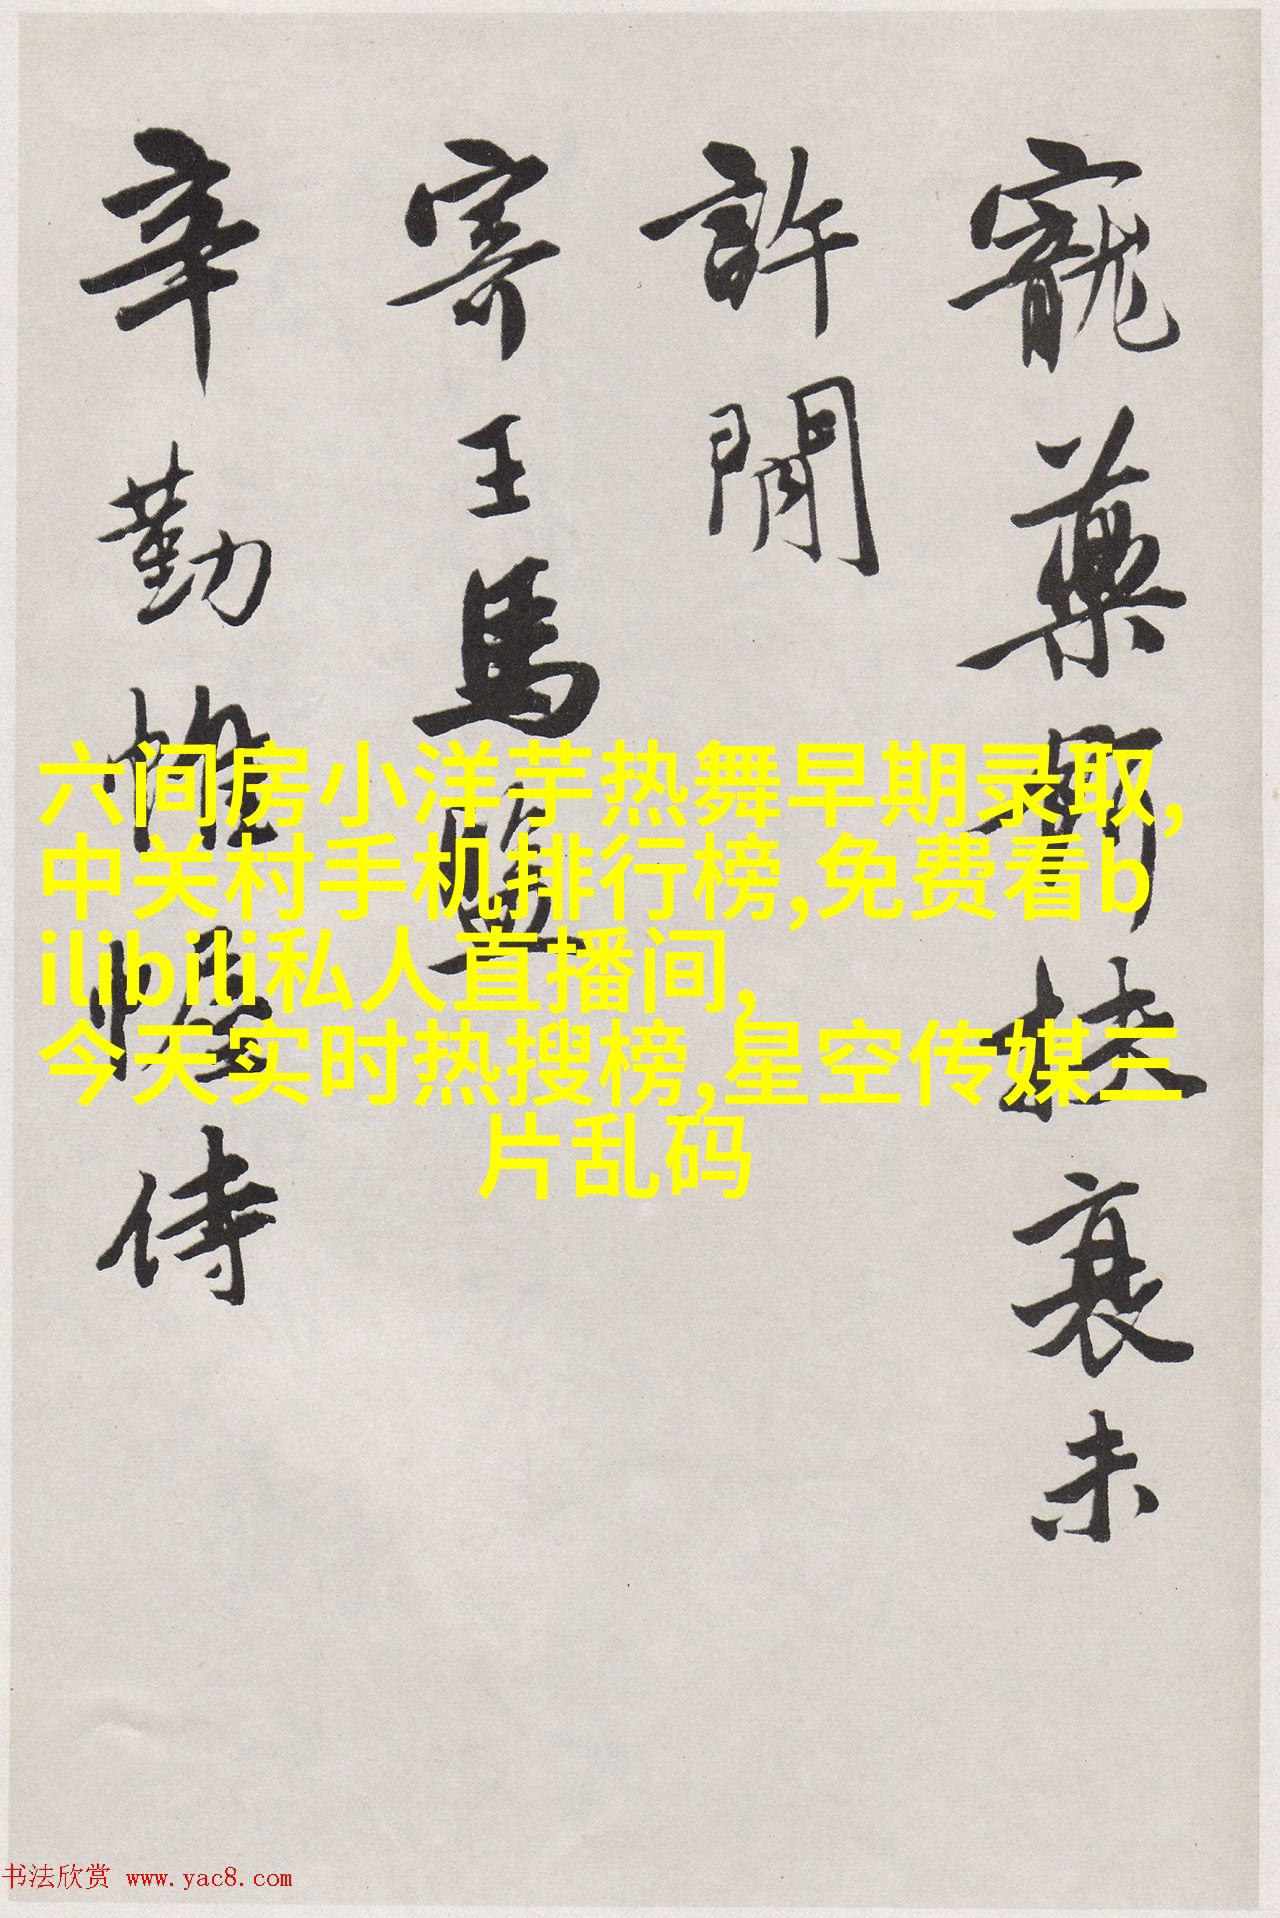 寵藥扶衰未
許閒
寄王馬監
辛勤帷幄侍
六间房小洋芋热舞早期录取,
中关村手机排行榜,免费看b
ilibili私人直播间,
今天实时热搜榜,星空传媒三
片乱码
书法欣赏 www.yac8.com